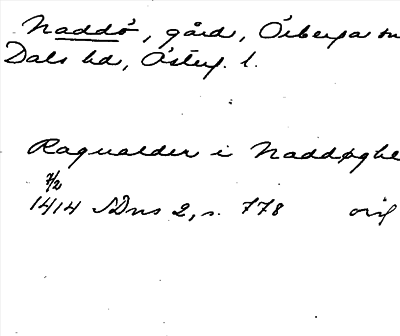 Naddö, gård, Örberga sn
Dals hd, Österg. l.
Ragualder i Naddøghe
7/2
1414 SDns 2, s. 778 orig